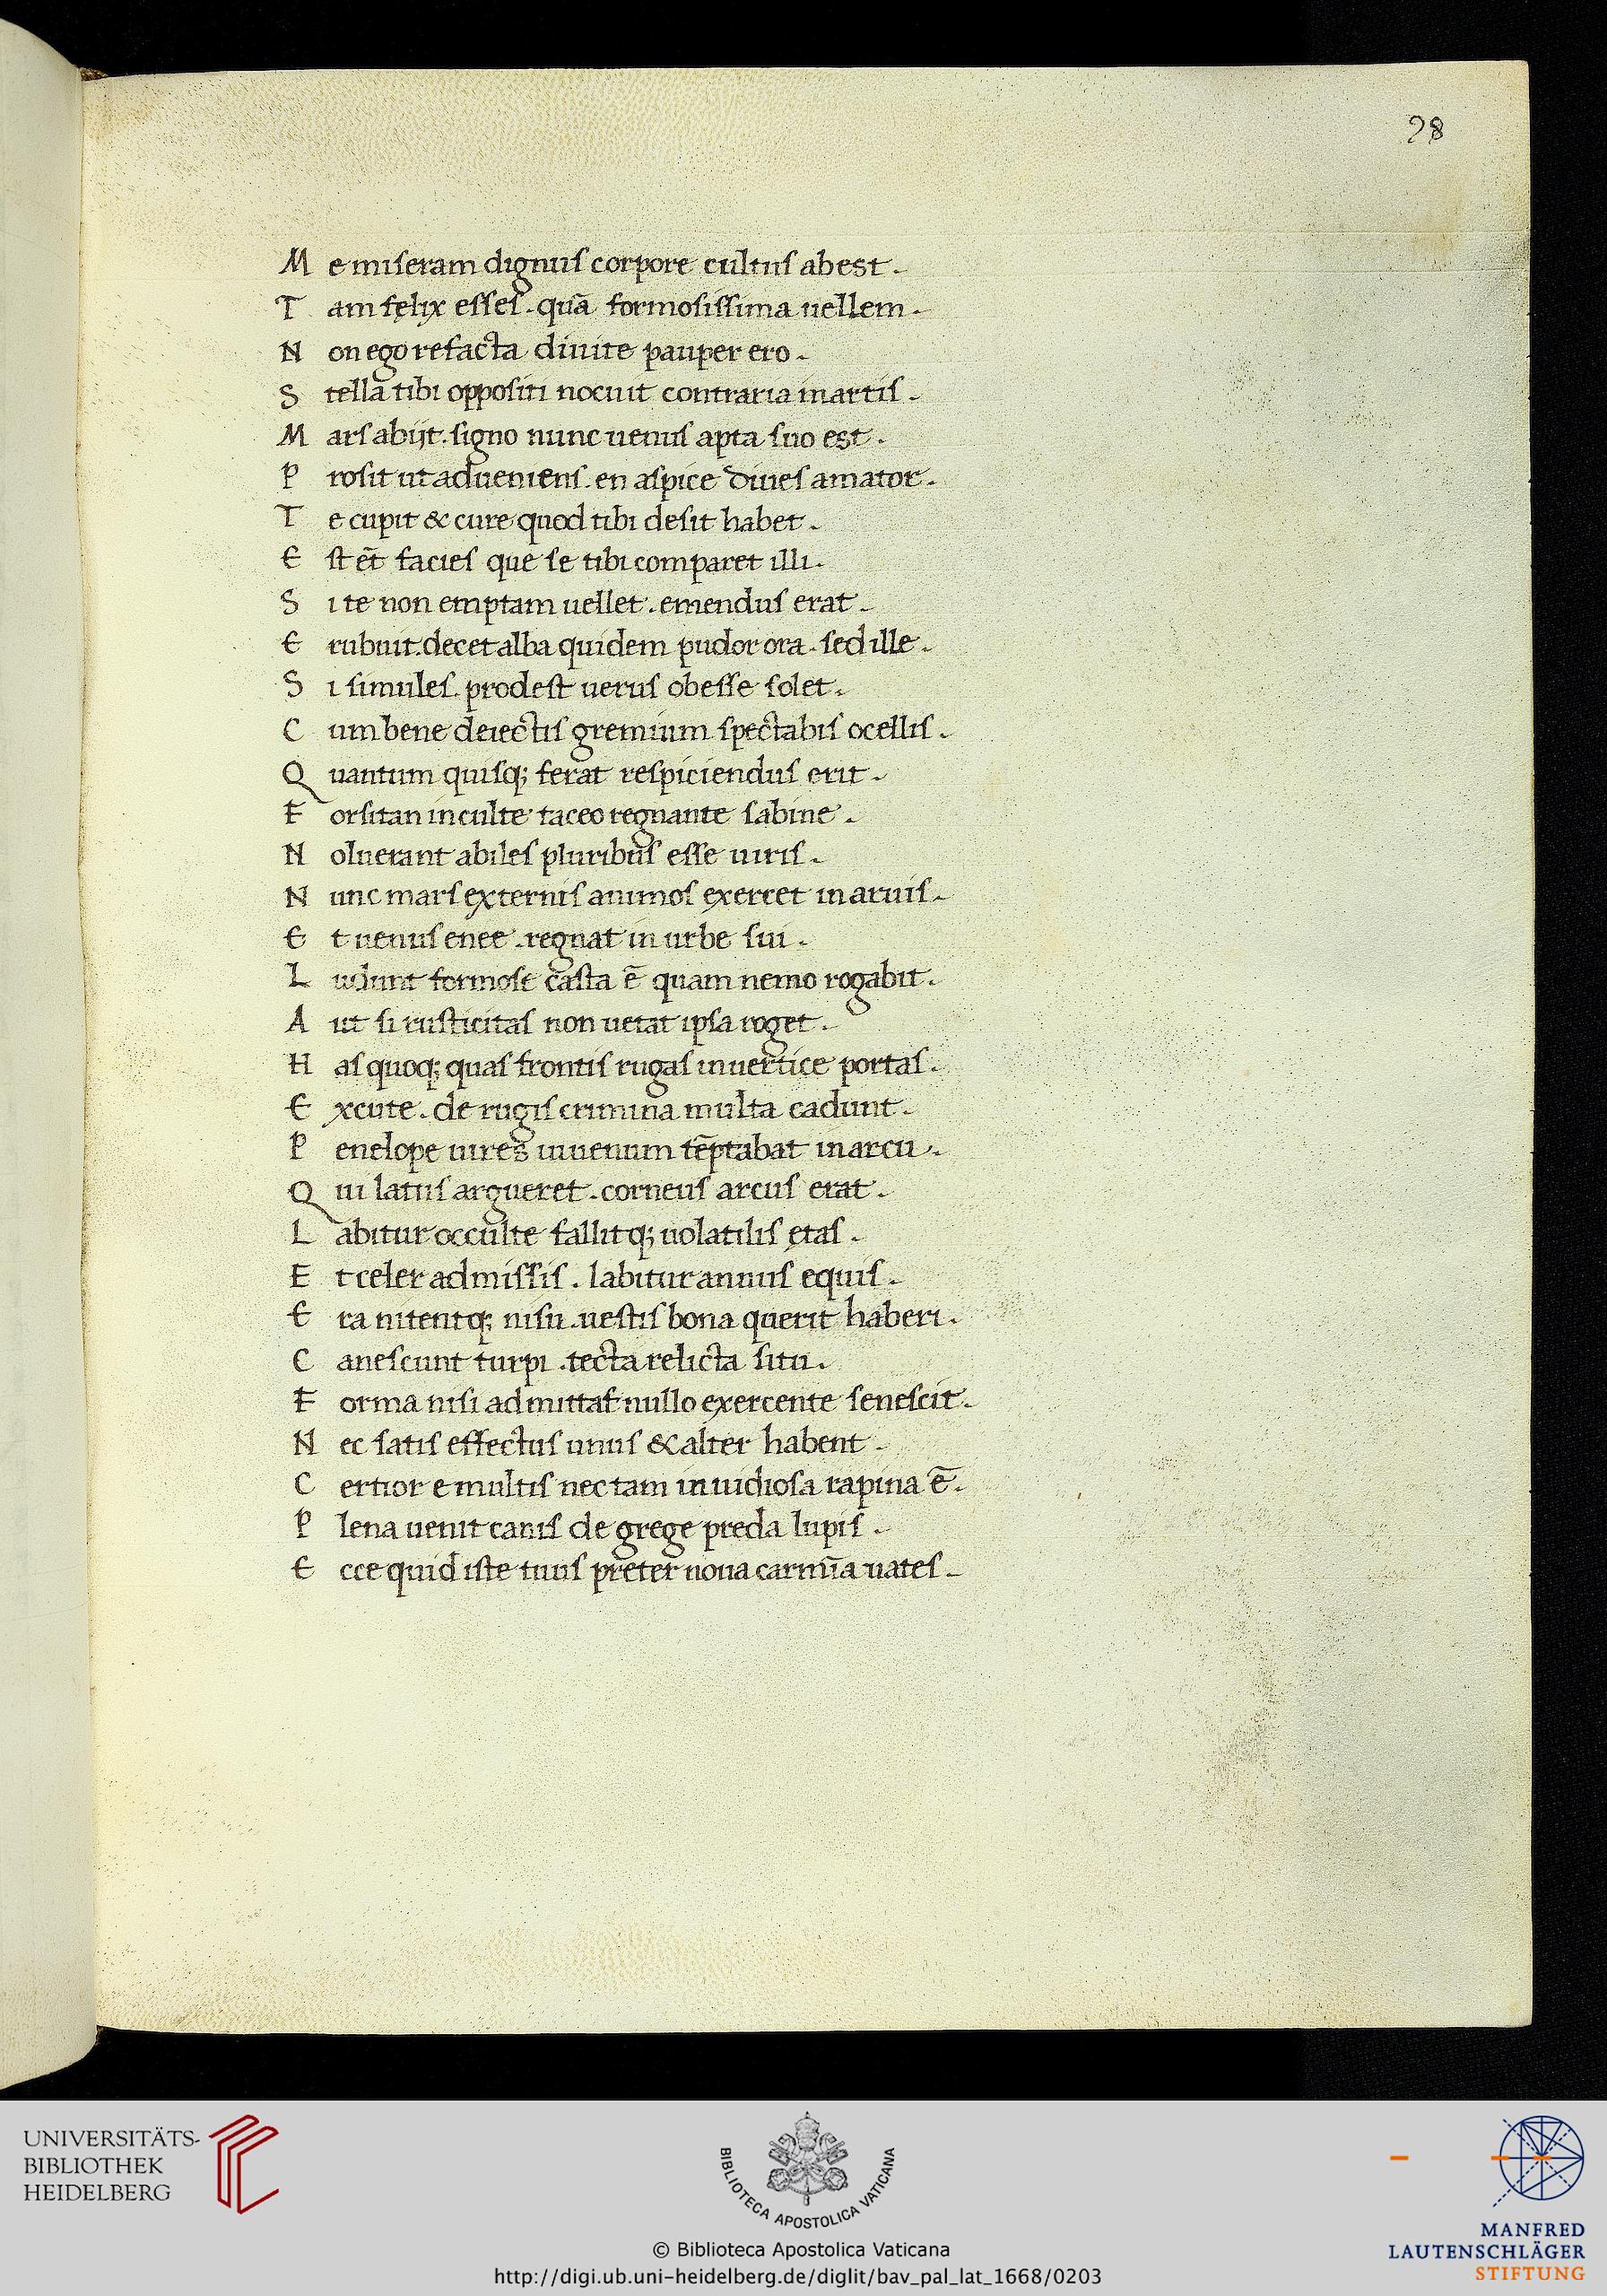 98
M e miseram dignus corpore cultus abest.
T am felix esses. quā formosissima uellem.
N on ego te facta diuite pauper ero.
S tella tibi oppositi nocuit contraria martis.
M ars abijt. signo nunc uenus apta suo est.
P rosit ut adueniens. en aspice diues amator.
T e cupit & cure quod tibi desit habet.
E st ēt facies que se tibi comparet illi.
S i te non emptam uellet. emendus erat.
E rubuit. decet alba quidem pudor ora. sed ille.
S i simules. prodest uerus obesse solet.
C um bene deiectis gremium spectabis ocellis.
Q uantum quisq; ferat respiciendus erit.
F orsitan inculte taceo regnante sabine.
N oluerant abiles pluribus esse uiris.
N unc mars externis animos exercet in aruis.
E t uenus enee. regnat in urbe sui.
L udunt formose casta ē quam nemo rogabit.
A ut si rusticitas non uetat ipsa roget.
H as quoq; quas frontis rugas in uertice portas.
E xcute. de rugis crimina multa cadunt.
P enelope uires iuuenum tēptabat in arcu.
Q ui latus argueret. corneus arcus erat.
L abitur occulte fallitq; uolatilis ętas.
E t celer admissis. labitur annus equis.
E ra nitentq; nisu. uestis bona querit haberi.
C anescunt turpi. tecta relicta situ.
F orma nisi admittas nullo exercente senescit.
N ec satis effectus unus & alter habent.
C ertior e multis nec tam inuidiosa rapina ē.
P lena uenit canis de grege preda lupis.
E cce quid iste tuus preter noua carmīa uates.
UNIVERSITÄTS-
BIBLIOTHEK
HEIDELBERG
BIBLIOTECA APOSTOLICA VATICANA
© Biblioteca Apostolica Vaticana
http://digi.ub.uni-heidelberg.de/diglit/bav_pal_lat_1668/0203
MANFRED
LAUTENSCHLÄGER
STIFTUNG